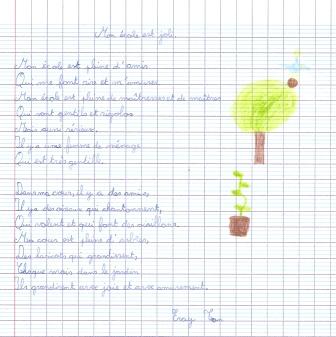 Mon école est joli.
Mon école est pleine d'amis
Qui me font rire et m'amuser.
Mon école est pleine de maîtresses et de maîtres
Qui sont gentils et rigolos
Mais aussi sérieux.
Il y a une femme de ménage
Qui est très gentille.
Dans ma cour, il y a des amies,
Il y a des oiseaux qui chantonnent,
Qui volent et qui font des
Ma cour est plein d'arbres,
Des haricots qui grandissent,
Chaque mois dans le jardin
Ils grandissent avec joie et avec amusement.